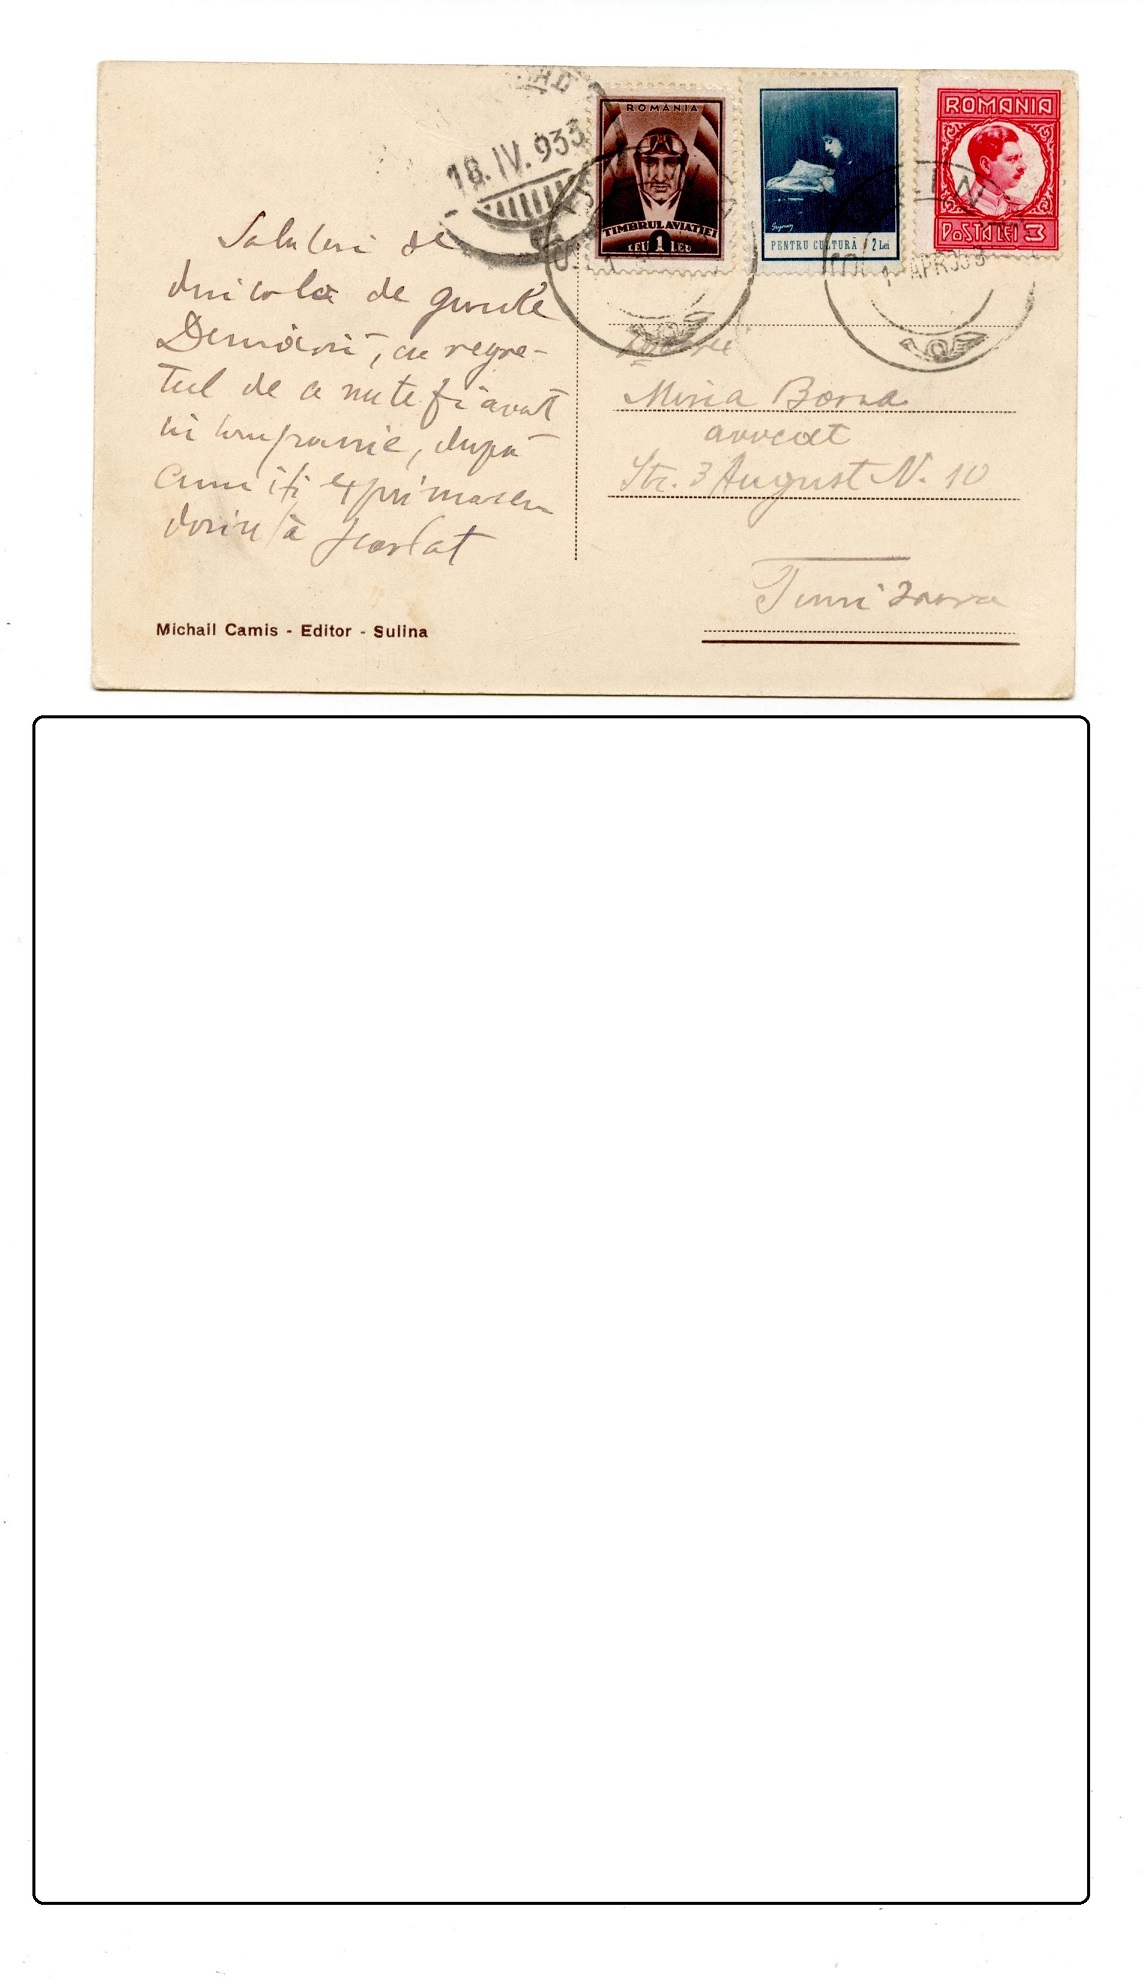 18. IV. 933
ROMANIA
TIMBRUL AVIAȚIEI
LEU 1 LEU
PENTRU CULTURĂ 2 Lei
ROMANIA
POSTA LEI 3
APR 933
Salutări de
de gurile
Dunării, cu regre-
tul de a nu te fi avut
în companie, după
cum îți exprimasem
dorința Scarlat
Michail Camis - Editor - Sulina
Borza
avocat
Str. 3 August N. 10
Timișoara